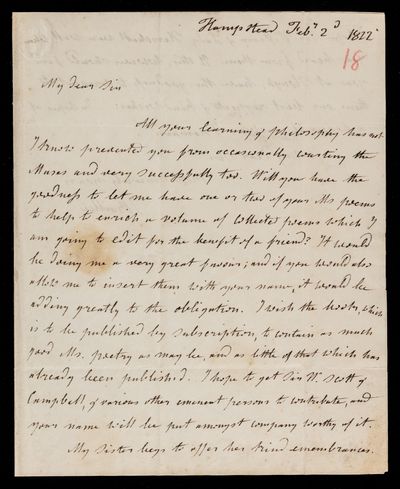 Hampstead Feby. 2d 1822
18
My dear Sir
All your learning & philosophy has not
I know prevented you from occasionally courting the
Muses and very successfully too. Will you have the
goodness to let me have one or two of your Ms poems
to help to enrich a volume of collected poems which I
am going to edit for the benefit of a friend? It would
be doing me a very great favour; and if you would also
allow me to insert them with your name, it would be
adding greatly to the obligation. I wish the book, which
is to be published by subscription, to contain as much
good Ms. poetry as may be, and as little of that which has
already been published. I hope to get Sir W. Scott &
Campbell, & various other eminent persons to contribute, and
your name will be put amongst company worthy of it.
My Sister begs to offer her kind remembrances.